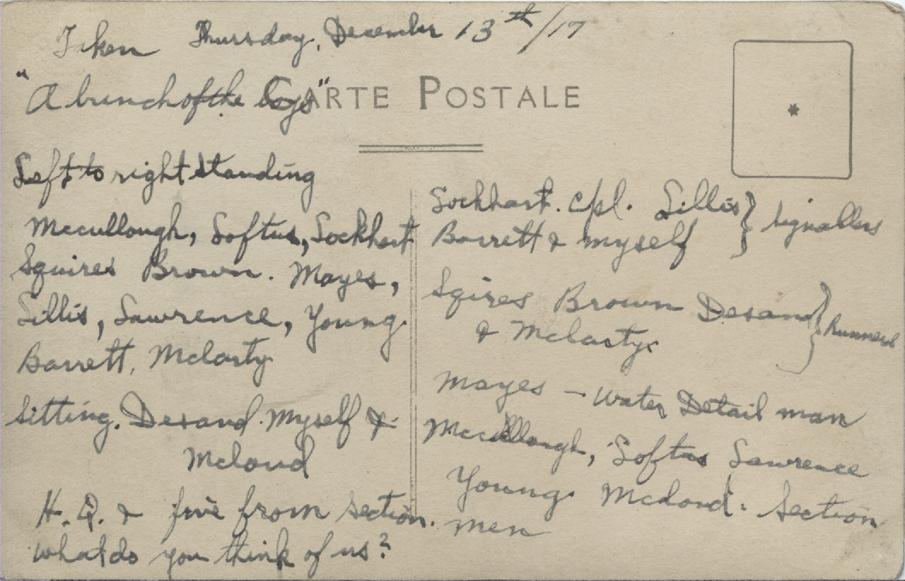 Taken Thursday, December 13th/17
"A bunch of the boys"
CARTE POSTALE
Left to right standing
Mccullough, Loftus, Lockhart
Squires Brown. Mayes,
Lillis, Lawrence, Young.
Barrett, Mclarty
Sitting. Desand. Myself &
Mcloud
H.Q. & five from section.
What do you think of us?
Lockhart. Cpl. Lillis } Signallers
Barrett & myself
Sqires Brown Desand } Runners
& Mclarty
Mayes – Water Detail man
Mccullough, Loftus Lawrence
Young. Mcloud. Section
men